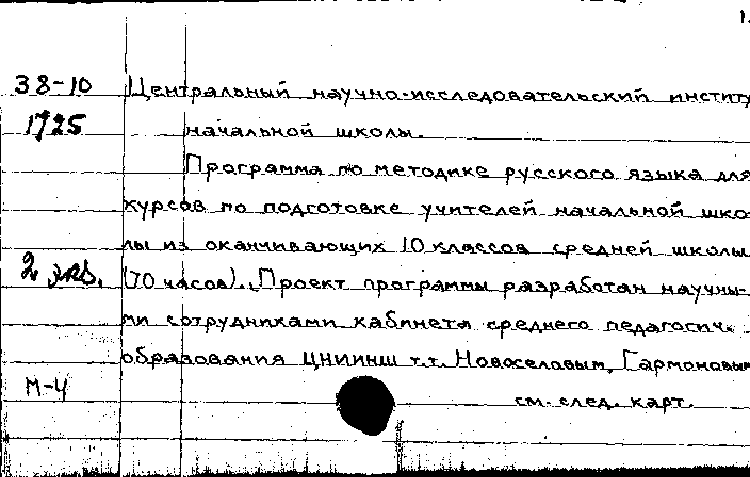 1.
38-10 Центральный научно-исследовательский институ
1725 начальной школы.
Программа по методике русского языка для
курсов по подготовке учителей начальной шко-
лы из оканчивающих 10 классов средней школы
2 экз. (70 часов). Проект программы разработан научны-
ми сотрудниками кабинета среднего педагогич.
образования ЦНИИНШ т.т. Новоселовым, Гармоновым
М-4
см. след. карт.